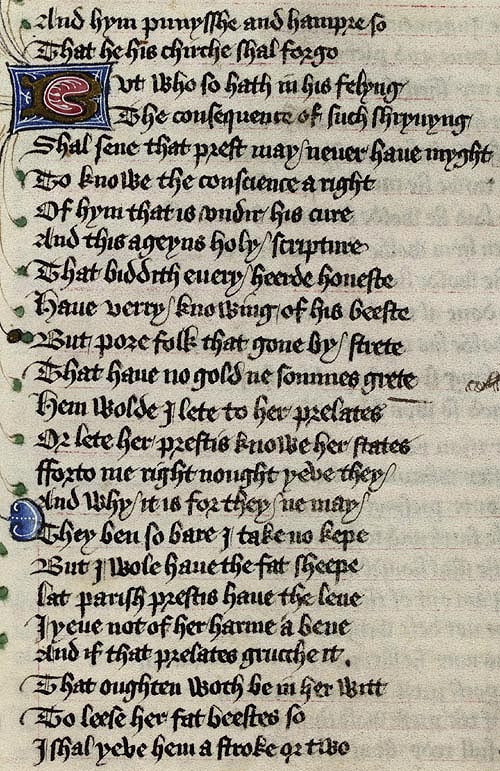 And hym punysshe and hampre so
That he his chirche shal forgo
But who so hath in his felyng
The consequence of such shryvyng
Shal sene that prest may / never have myght
To knowe the conscience a right
Of hym that is undir his cure
And this ageyns holy / scripture
That biddith every / heerde honeste
Have verry / knowing / of his beeste
But pore folk that gone by / strete
That have no gold ne sommes grete
Hem wolde I lete to her prelates
Or lete her prestis knowe her states
fforto me right nought yeve they /
And why / it is for they / ne may /
They ben so bare I take no kepe
But I wole have the fat sheepe
lat parish prestis have the lene
I yeve not of her harme a bene
And if that prelates grucche it .
That oughten woth be in her witt
To leese her fat beestes so
I shal yeve hem a stroke or two